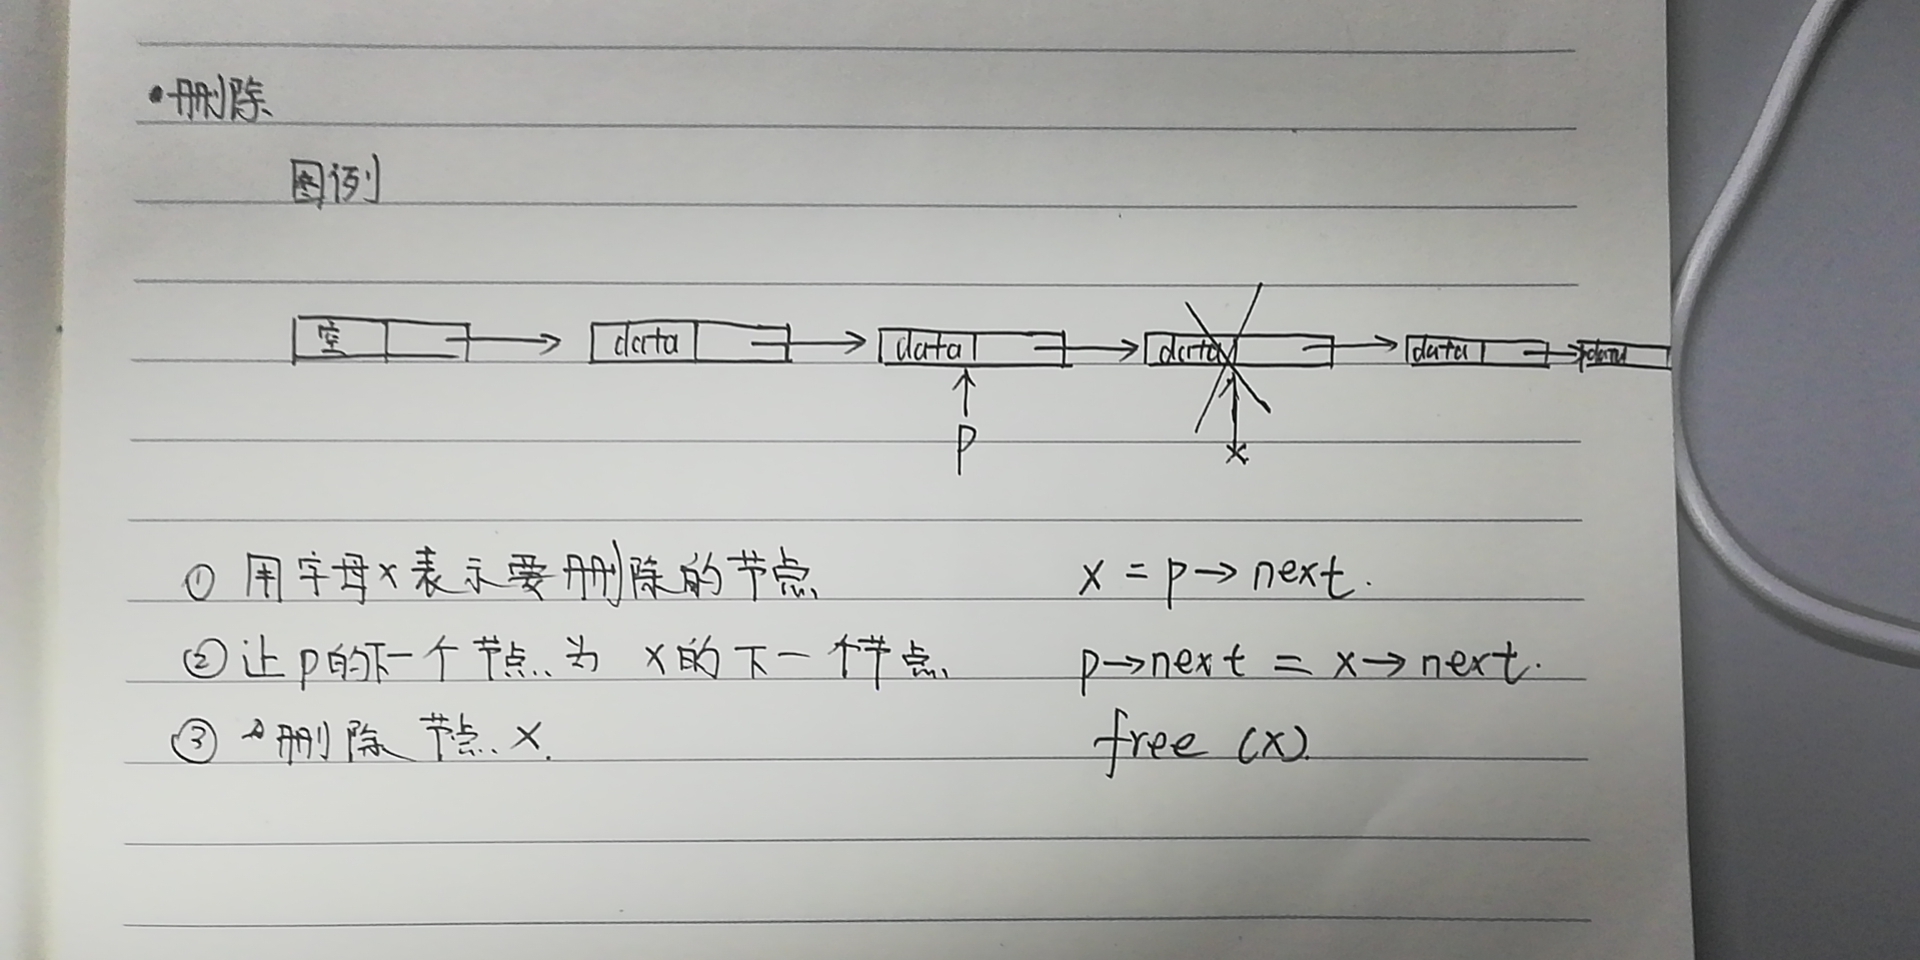 •删除
图例
空 data data data data data
p x
① 用字母x表示要删除的节点 x = p→next.
② 让p的下一个节点为 x的下一个节点 p→next = x→next.
③ 删除节点x. free (x).